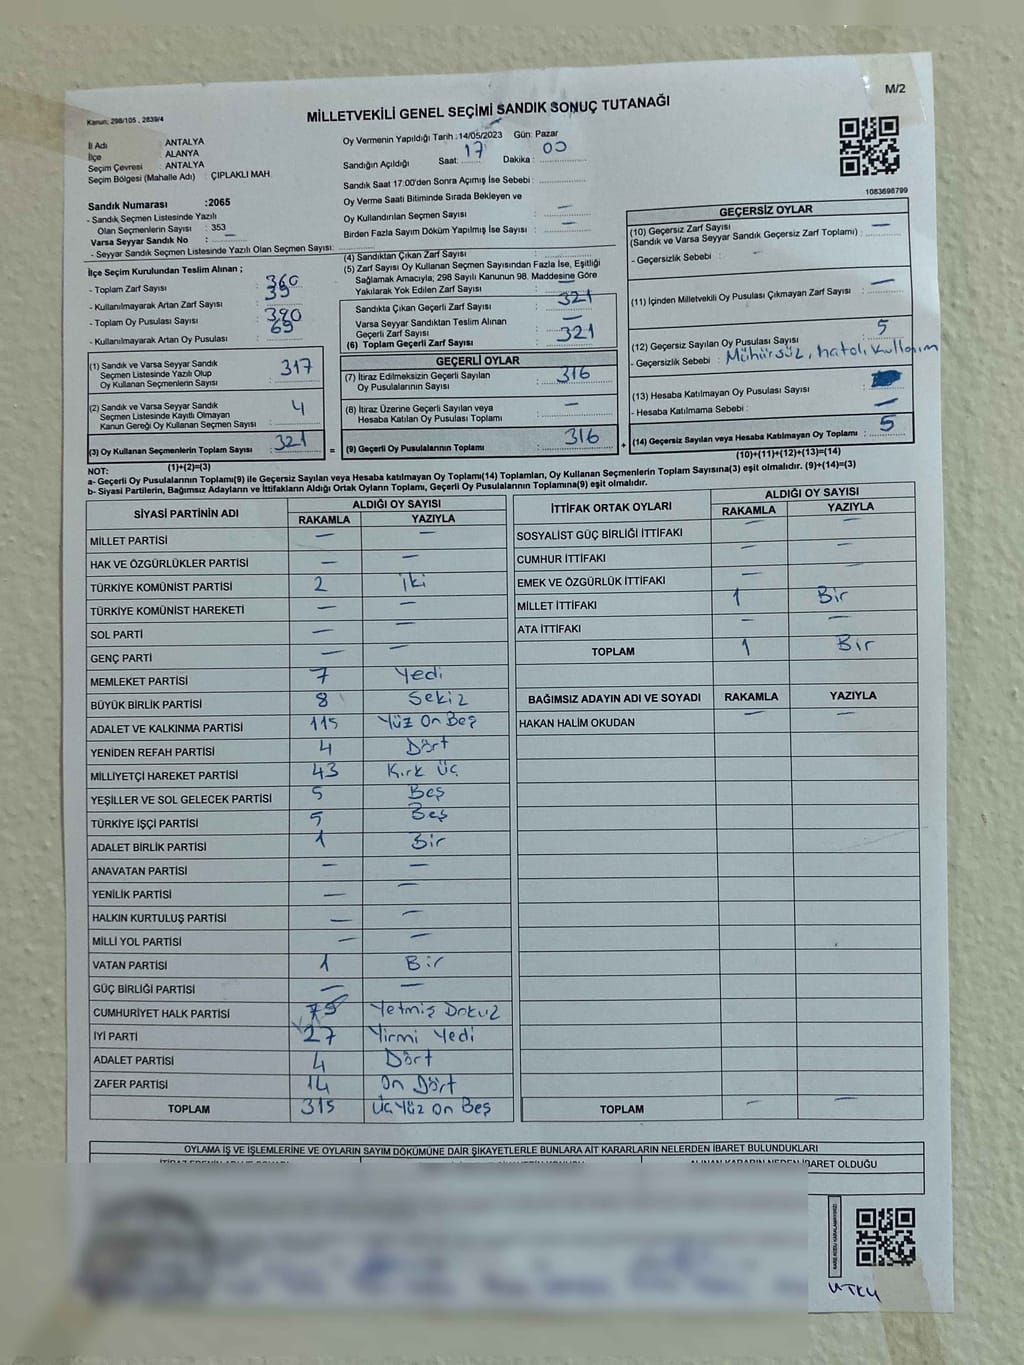 M/2
Kanun: 298/105 , 2839/4
MİLLETVEKİLİ GENEL SEÇİMİ SANDIK SONUÇ TUTANAĞI
İl Adı : ANTALYA
İlçe : ALANYA
Seçim Çevresi : ANTALYA
Seçim Bölgesi (Mahalle Adı) : ÇIPLAKLI MAH.
Sandık Numarası :2065
- Sandık Seçmen Listesinde Yazılı
Olan Seçmenlerin Sayısı : 353
Varsa Seyyar Sandık No : —
- Seyyar Sandık Seçmen Listesinde Yazılı Olan Seçmen Sayısı:
Oy Vermenin Yapıldığı Tarih :14/05/2023 Gün: Pazar
Sandığın Açıldığı Saat: 17 Dakika : 00
Sandık Saat 17:00'den Sonra Açımış İse Sebebi :
Oy Verme Saati Bitiminde Sırada Bekleyen ve
Oy Kullandırılan Seçmen Sayısı : —
Birden Fazla Sayım Döküm Yapılmış İse Sayısı : —
1083698799
İlçe Seçim Kurulundan Teslim Alınan ;
- Toplam Zarf Sayısı : 360
- Kullanılmayarak Artan Zarf Sayısı : 39
- Toplam Oy Pusulası Sayısı : 390
- Kullanılmayarak Artan Oy Pusulası : 69
(1) Sandık ve Varsa Seyyar Sandık
Seçmen Listesinde Yazılı Olup
Oy Kullanan Seçmenlerin Sayısı : 317
(2) Sandık ve Varsa Seyyar Sandık
Seçmen Listesinde Kayıtlı Olmayan
Kanun Gereği Oy Kullanan Seçmen Sayısı : 4
(3) Oy Kullanan Seçmenlerin Toplam Sayısı : 321
(1)+(2)=(3)
(4) Sandıktan Çıkan Zarf Sayısı :
(5) Zarf Sayısı Oy Kullanan Seçmen Sayısından Fazla İse, Eşitliği
Sağlamak Amacıyla; 298 Sayılı Kanunun 98. Maddesine Göre
Yakılarak Yok Edilen Zarf Sayısı : —
Sandıkta Çıkan Geçerli Zarf Sayısı : 321
Varsa Seyyar Sandıktan Teslim Alınan
Geçerli Zarf Sayısı : —
(6) Toplam Geçerli Zarf Sayısı : 321
GEÇERLİ OYLAR
(7) İtiraz Edilmeksizin Geçerli Sayılan
Oy Pusulalarının Sayısı : 316
(8) İtiraz Üzerine Geçerli Sayılan veya
Hesaba Katılan Oy Pusulası Toplamı : —
= (9) Geçerli Oy Pusulalarının Toplamı : 316 +
GEÇERSİZ OYLAR
(10) Geçersiz Zarf Sayısı
(Sandık ve Varsa Seyyar Sandık Geçersiz Zarf Toplamı) : —
- Geçersizlik Sebebi :
(11) İçinden Milletvekili Oy Pusulası Çıkmayan Zarf Sayısı : —
(12) Geçersiz Sayılan Oy Pusulası Sayısı : 5
- Geçersizlik Sebebi : Mühürsüz, hatalı kullanım
(13) Hesaba Katılmayan Oy Pusulası Sayısı :
- Hesaba Katılmama Sebebi : —
(14) Geçersiz Sayılan veya Hesaba Katılmayan Oy Toplamı : 5
(10)+(11)+(12)+(13)=(14)
NOT:
a- Geçerli Oy Pusulalarının Toplamı(9) ile Geçersiz Sayılan veya Hesaba katılmayan Oy Toplamı(14) Toplamları, Oy Kullanan Seçmenlerin Toplam Sayısına(3) eşit olmalıdır. (9)+(14)=(3)
b- Siyasi Partilerin, Bağımsız Adayların ve İttifakların Aldığı Ortak Oyların Toplamı, Geçerli Oy Pusulalarının Toplamına(9) eşit olmalıdır.
SİYASİ PARTİNİN ADI ALDIĞI OY SAYISI
RAKAMLA YAZIYLA
MİLLET PARTİSİ — —
HAK VE ÖZGÜRLÜKLER PARTİSİ — —
TÜRKİYE KOMÜNİST PARTİSİ 2 iki
TÜRKİYE KOMÜNİST HAREKETİ — —
SOL PARTİ — —
GENÇ PARTİ — —
MEMLEKET PARTİSİ 7 Yedi
BÜYÜK BİRLİK PARTİSİ 8 Sekiz
ADALET VE KALKINMA PARTİSİ 115 Yüz On Beş
YENİDEN REFAH PARTİSİ 4 Dört
MİLLİYETÇİ HAREKET PARTİSİ 43 Kırk üç
YEŞİLLER VE SOL GELECEK PARTİSİ 5 Beş
TÜRKİYE İŞÇİ PARTİSİ 5 Beş
ADALET BİRLİK PARTİSİ 1 Bir
ANAVATAN PARTİSİ — —
YENİLİK PARTİSİ — —
HALKIN KURTULUŞ PARTİSİ — —
MİLLİ YOL PARTİSİ — —
VATAN PARTİSİ 1 Bir
GÜÇ BİRLİĞİ PARTİSİ — —
CUMHURİYET HALK PARTİSİ 79 Yetmiş Dokuz
İYİ PARTİ 27 Yirmi Yedi
ADALET PARTİSİ 4 Dört
ZAFER PARTİSİ 14 On Dört
TOPLAM 315 Üç Yüz On Beş
İTTİFAK ORTAK OYLARI ALDIĞI OY SAYISI
RAKAMLA YAZIYLA
SOSYALİST GÜÇ BİRLİĞİ İTTİFAKI — —
CUMHUR İTTİFAKI — —
EMEK VE ÖZGÜRLÜK İTTİFAKI — —
MİLLET İTTİFAKI 1 Bir
ATA İTTİFAKI — —
TOPLAM 1 Bir
BAĞIMSIZ ADAYIN ADI VE SOYADI RAKAMLA YAZIYLA
HAKAN HALİM OKUDAN — —
TOPLAM — —
OYLAMA İŞ VE İŞLEMLERİNE VE OYLARIN SAYIM DÖKÜMÜNE DAİR ŞİKAYETLERLE BUNLARA AİT KARARLARIN NELERDEN İBARET BULUNDUKLARI
ALINAN KARARIN NEDEN İBARET OLDUĞU
UTKU